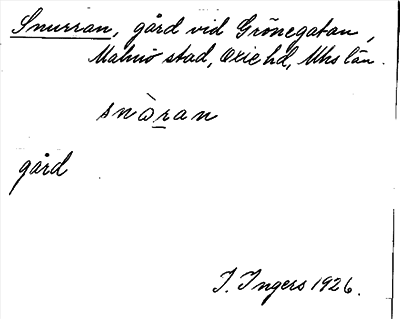 Snurran, gård vid Grönegatan,
Malmö stad, Oxie hd, Mhs län.
snὼran
gård
I. Ingers 1926.